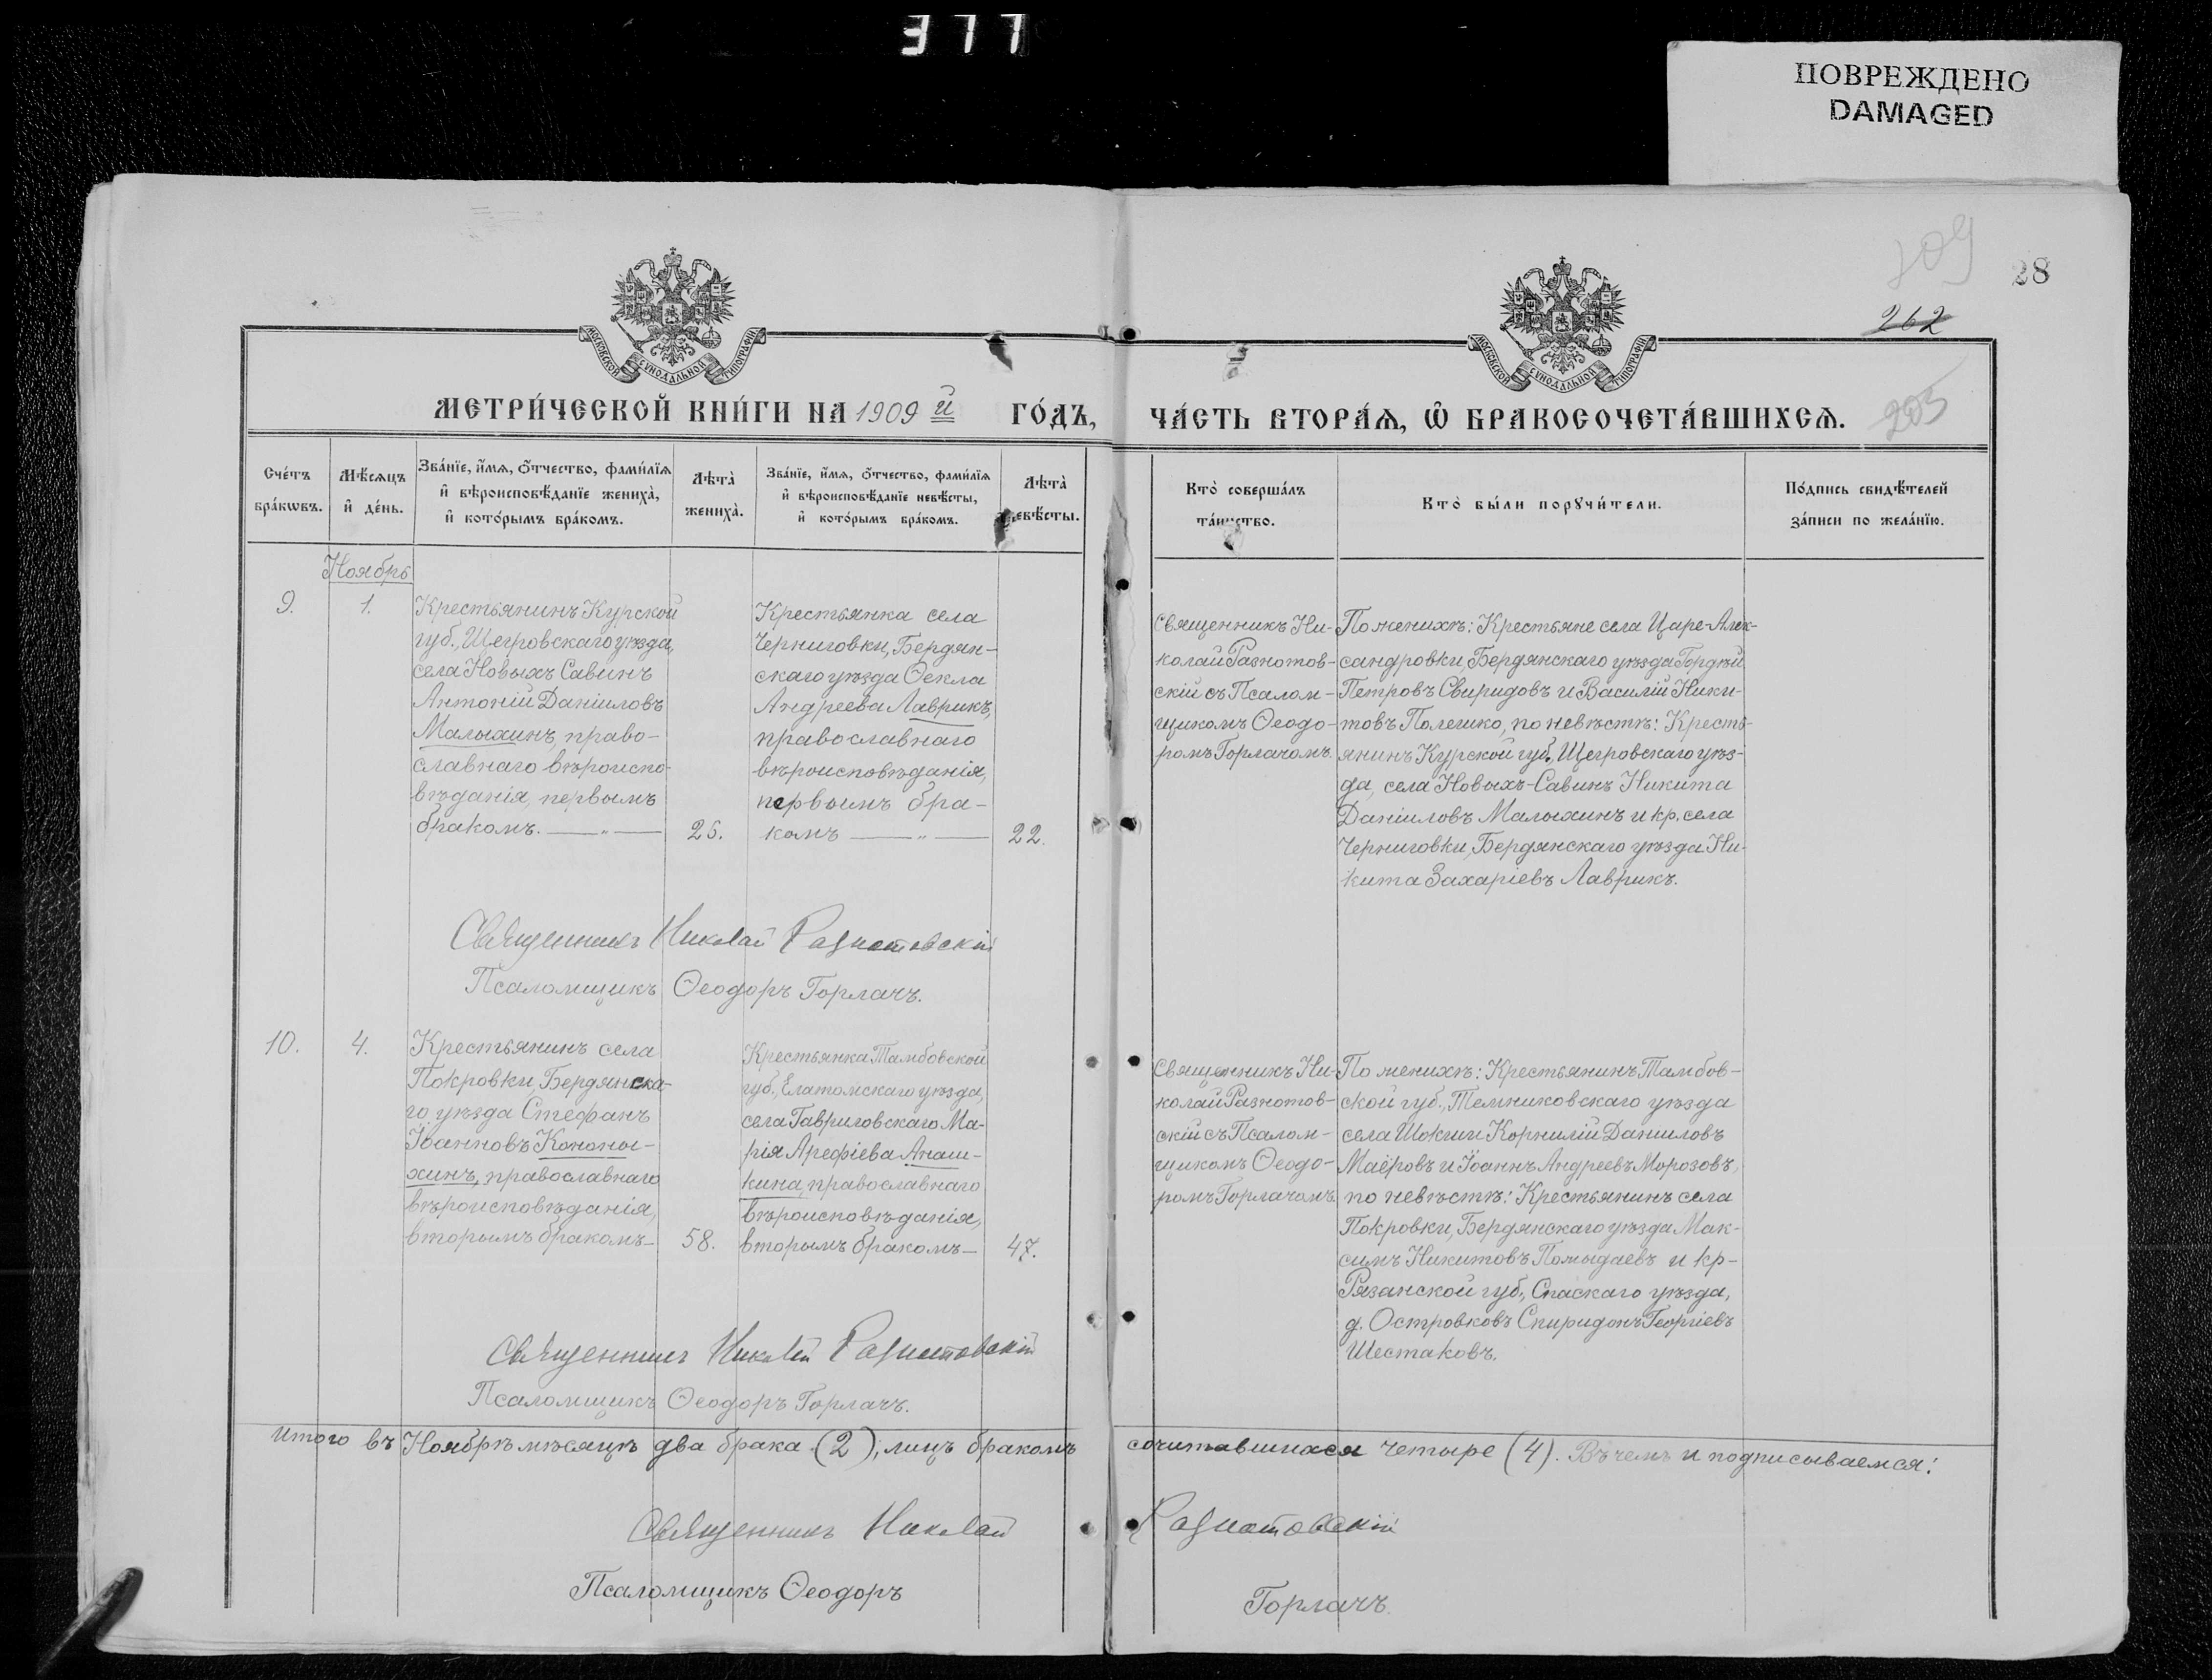 377
ПОВРЕЖДЕНО
DAMAGED
109
28
262
МОСКОВСКОЙ СУНОДАЛЬНОЙ ТИПОГРАФІИ
МОСКОВСКОЙ СУНОДАЛЬНОЙ ТИПОГРАФІИ
МЕТРИ́ЧЕСКОЙ КНИ́ГИ НА 1909 й ГО́ДЪ,
ЧА́СТЬ ВТОРА́Ѧ, Ѡ҆ БРАКОСОЧЕТА́ВШИХСѦ.
203
Сче́тъ
бра́кѡвъ.
Мѣ́сѧцъ
и҆ де́нь.
Зва́нїе, и҆́мѧ, ѻ҆́тчество, фами́лїѧ
и҆ вѣроисповѣ́данїе жениха̀,
и҆ кото́рымъ бра́комъ.
Лѣта̀
жениха̀.
Зва́нїе, и҆́мѧ, ѻ҆́тчество, фами́лїѧ
и҆ вѣроисповѣ́данїе невѣ́сты,
и҆ кото́рымъ бра́комъ.
Лѣта̀
невѣ́сты.
Кто̀ соверша́лъ
та́инство.
Кто̀ бы́ли порꙋчи́тели.
По́дпись свидѣ́телей
за́писи по жела́нїю.
Ноябрь
9.
1.
Крестьянинъ Курской
губ., Щегровскаго уѣзда,
села Новыхъ Савинъ
Антоній Даніиловъ
Малыхинъ, право-
славнаго вѣроиспо-
вѣданія, первымъ
бракомъ. — „ —
26.
Крестьянка села
Черниговки, Бердян-
скаго уѣзда Ѳекла
Андреева Лаврикъ,
православнаго
вѣроисповѣданія,
первымъ бра-
комъ — „ —
22.
Священникъ Ни-
колай Разнотов-
скій съ Псалом-
щикомъ Ѳеодо-
ромъ Горлачомъ.
По женихѣ: Крестьяне села Царе-Алек-
сандровки Бердянскаго уѣзда Гордѣй
Петровъ Свиридовъ и Василій Ники-
товъ Полешко, по невѣстѣ: Кресть-
янинъ Курской губ., Щегровскаго уѣз-
да, села Новыхъ-Савинъ Никита
Даніиловъ Малыхинъ и кр. села
Черниговки, Бердянскаго уѣзда Ни-
кита Захаріевъ Лаврикъ.
Священникъ Николай Разнотовскій
Псаломщикъ Ѳеодоръ Горлачъ.
10.
4.
Крестьянинъ села
Покровки, Бердянска-
го уѣзда Стефанъ
Іоанновъ Кононы-
хинъ, православнаго
вѣроисповѣданія,
вторымъ бракомъ —
58.
Крестьянка Тамбовской
губ., Елатомскаго уѣзда,
села Гавриловскаго Ма-
рія Арефіева Анаш-
кина, православнаго
вѣроисповѣданія,
вторымъ бракомъ —
47.
Священникъ Ни-
колай Разнотов-
скій съ Псалом-
щикомъ Ѳеодо-
ромъ Горлачомъ.
По женихѣ: Крестьянинъ Тамбов-
ской губ., Темниковскаго уѣзда
села Шокши Корнилій Даниловъ
Маёровъ и Іоаннъ Андреевъ Морозовъ,
по невѣстѣ: Крестьянинъ села
Покровки, Бердянскаго уѣзда Мак-
симъ Никитовъ Помыдаевъ и кр-
Рязанской губ., Спаскаго уѣзда,
д. Островковъ Спиридонъ Георгіевъ
Шестаковъ.
Священникъ Николай Разнотовскій
Псаломщикъ Ѳеодоръ Горлачъ.
Итого въ Ноябрѣ мѣсяцѣ два брака (2), лицъ бракомъ сочитавшихся четыре (4). Въ чемъ и подписываемся:
Священникъ Николай Разнотовскій
Псаломщикъ Ѳеодоръ Горлачъ.